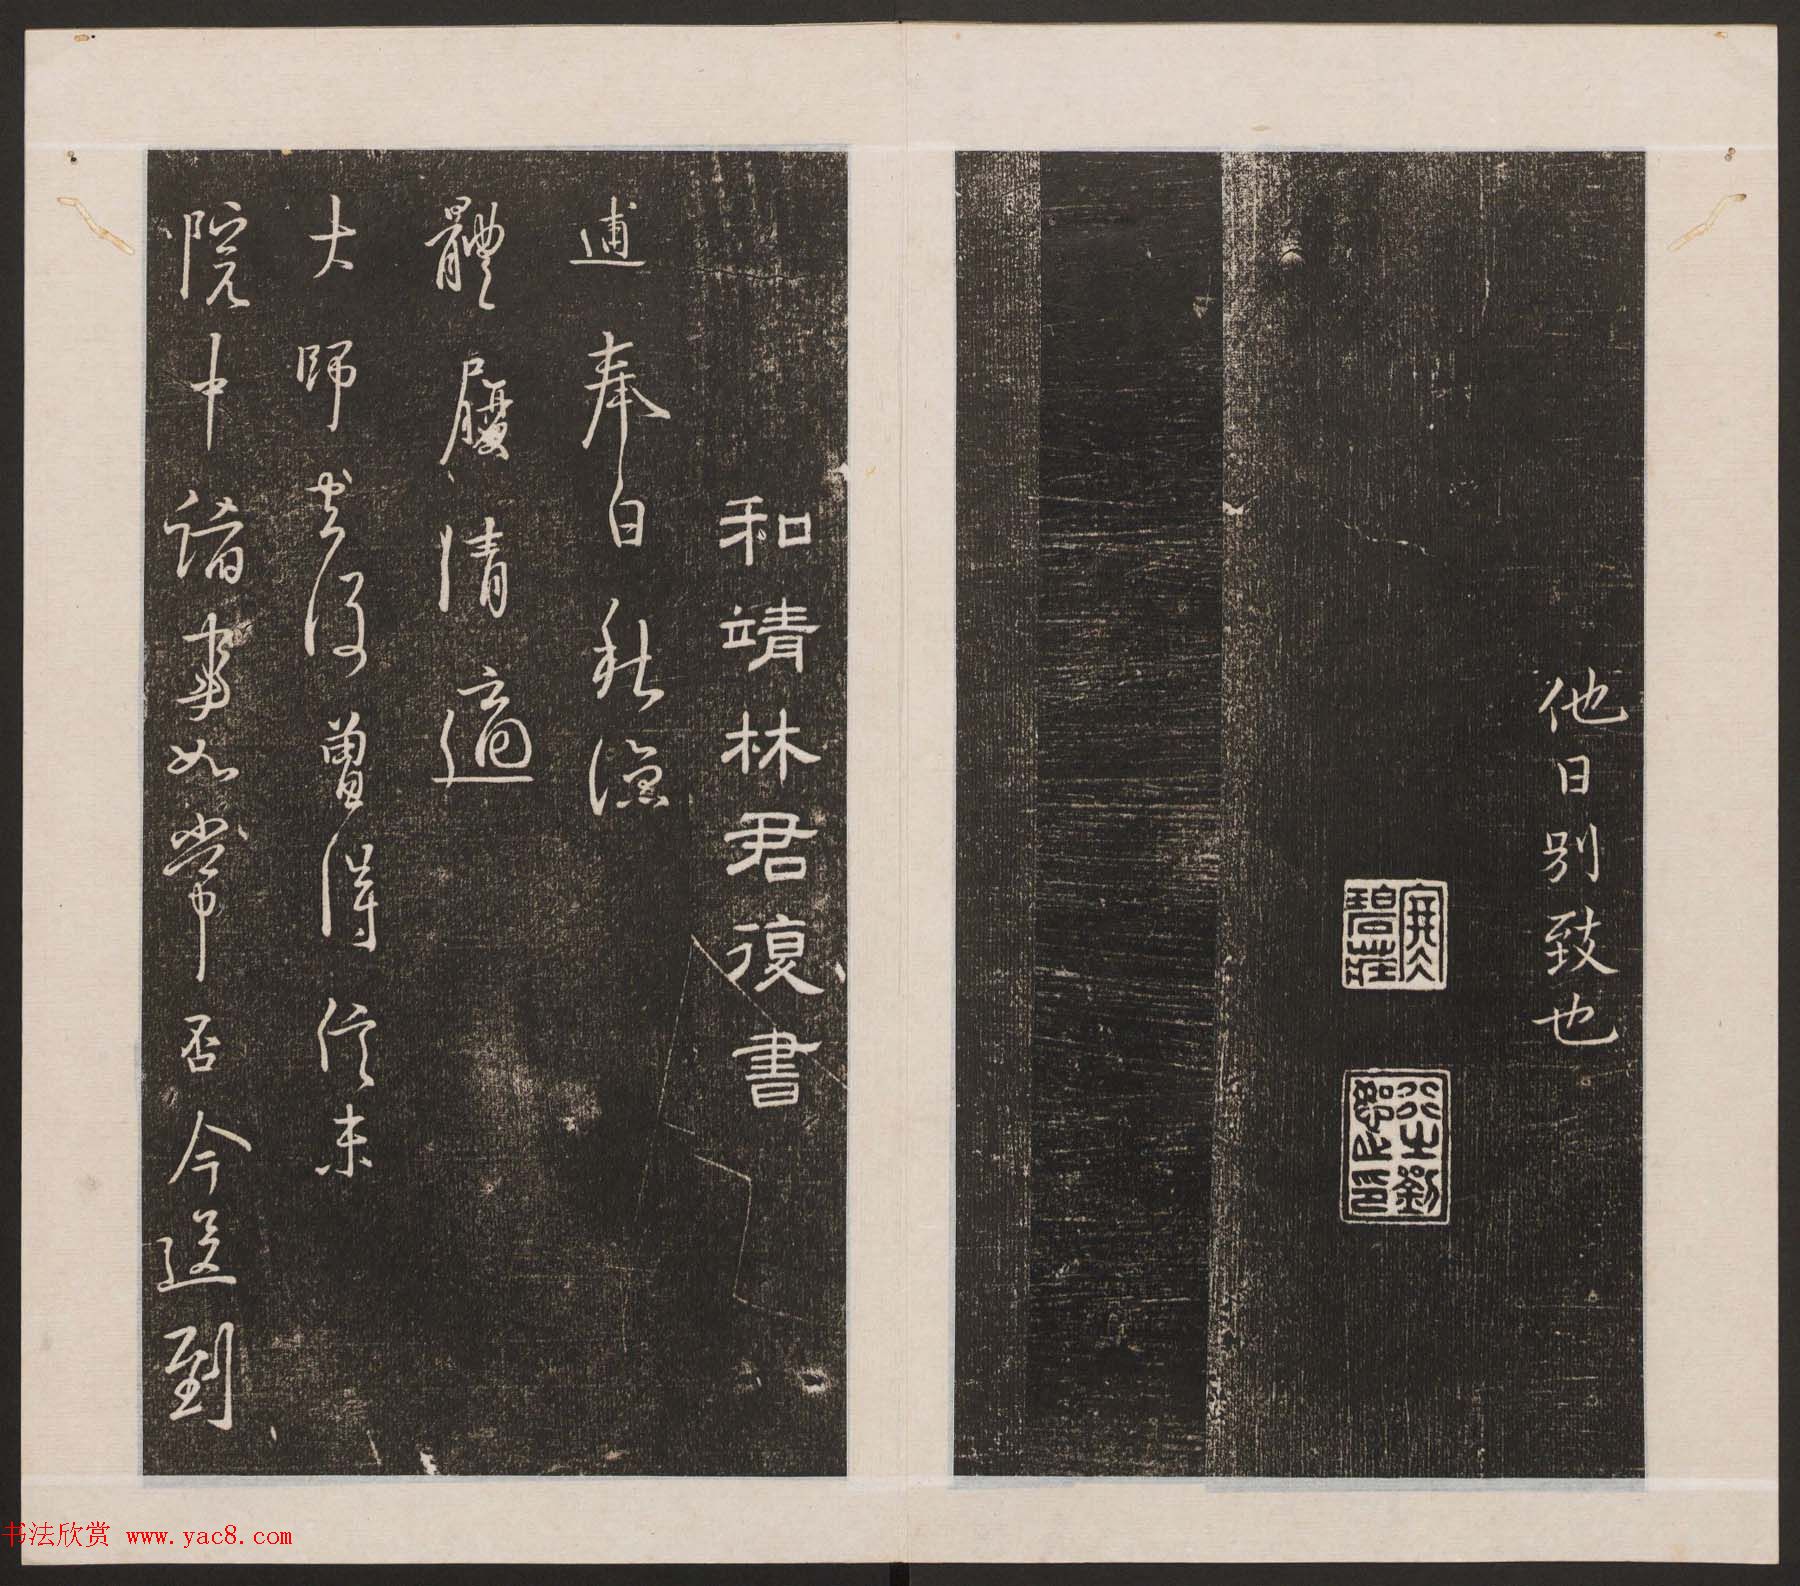 他日別致也
寒碧莊
和靖林君復書
逋奉白秋涼
體履清適
大師去後曾得信未
院中諸事如常否今送到
书法欣赏 www.yac8.com